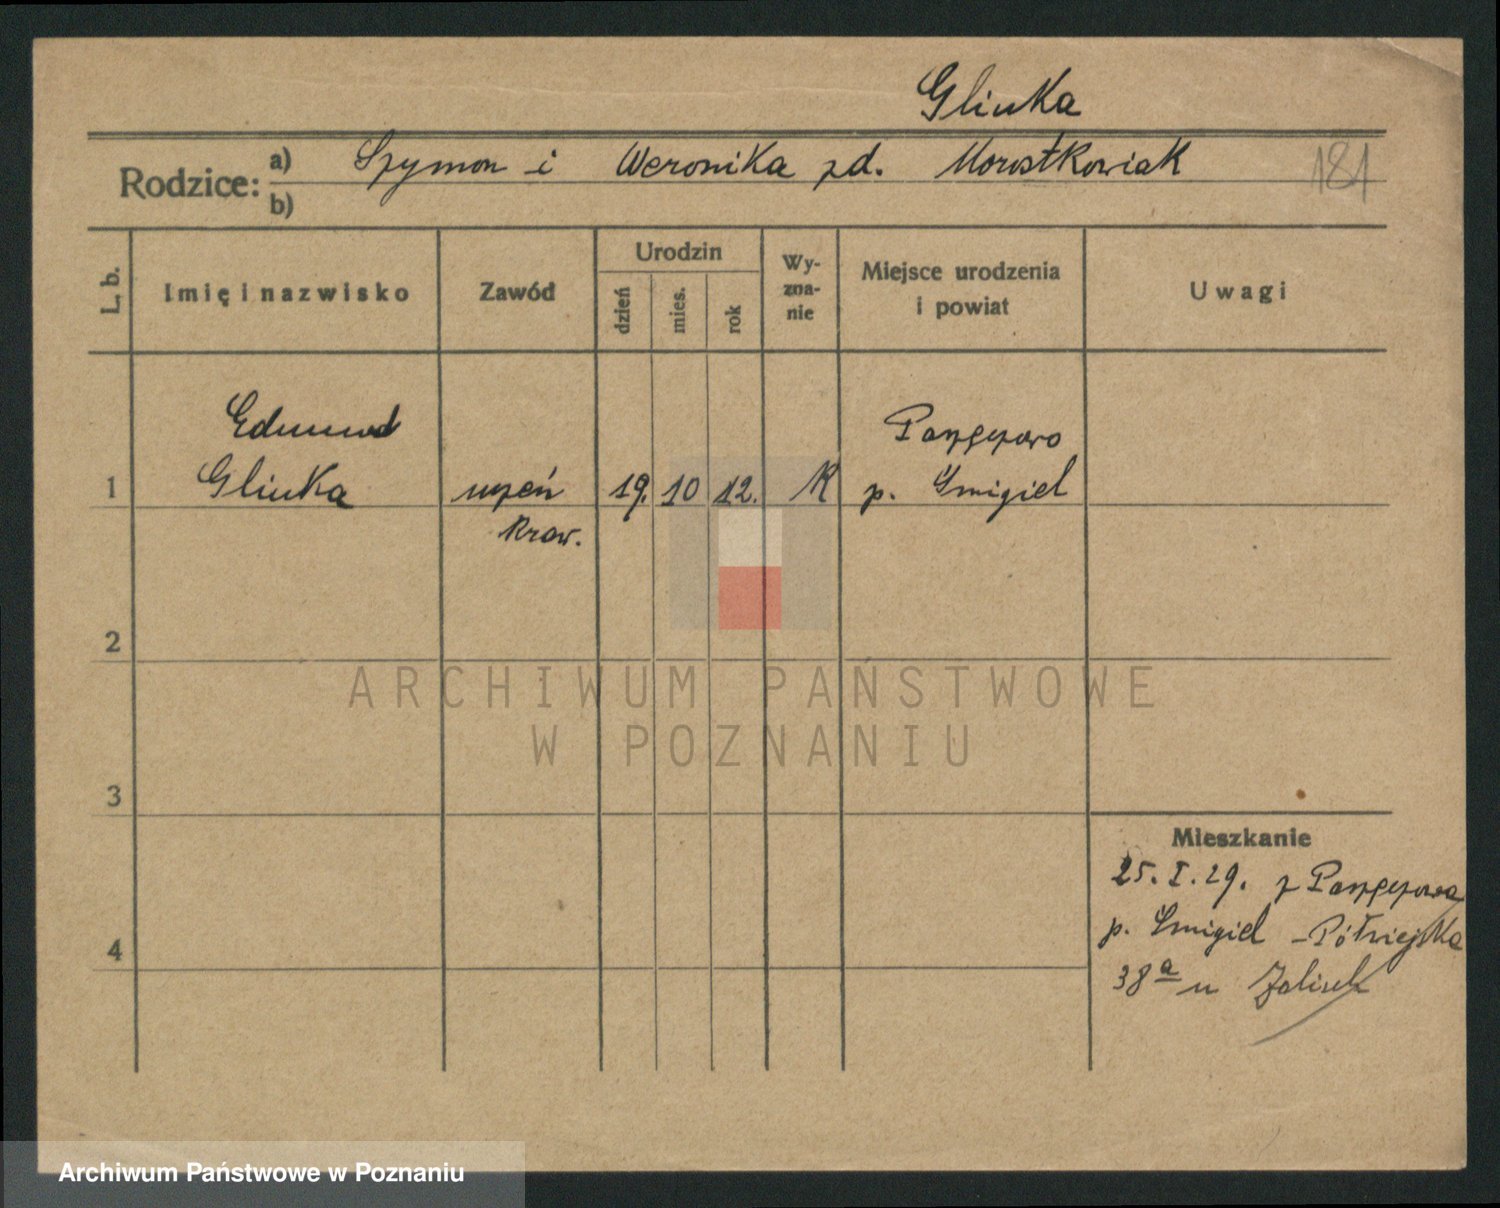 Glinka
Rodzice: a) Szymon i Weronika zd. Morostkowiak
b)
181
L. b.
Imię i nazwisko
Zawód
Urodzin
dzień
mies.
rok
Wy-
zna-
nie
Miejsce urodzenia
i powiat
Uwagi
Edmund
Glinka
1
uczeń
kraw.
19. 10 12.
K
p. Śmigiel
2
3
4
Mieszkanie
25. I. 29. z
p. Śmigiel - Półwiejska
38 a u
ARCHIWUM PAŃSTWOWE
W POZNANIU
Archiwum Państwowe w Poznaniu